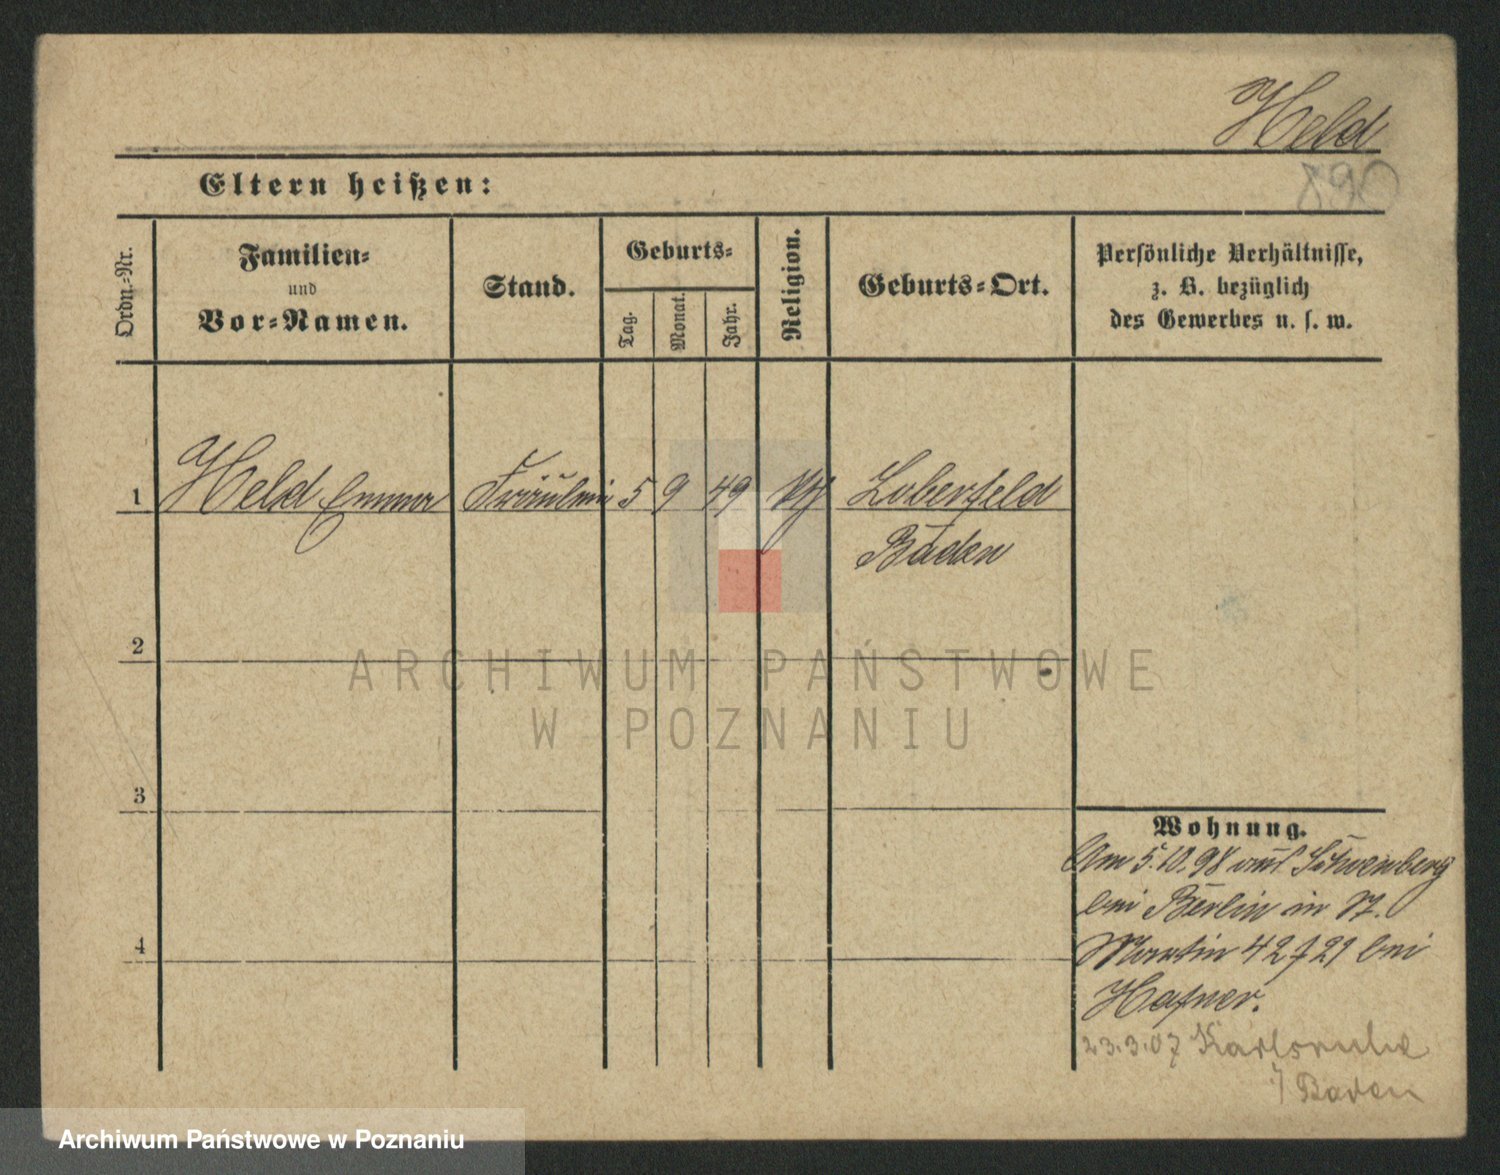 Held
890
Eltern heißen:
Ordn.-Nr.
Familien-
und
Vor-Namen.
Stand.
Geburts-
Tag.
Monat.
Jahr.
Religion.
Geburts-Ort.
Persönliche Verhältnisse,
z. B. bezüglich
des Gewerbes u. s. w.
1 Held Emma Fräulein 5 9 49 Loberfeld
Baden
2
3
4
Wohnung.
Am 5.10.98 aus
bei Berlin in St.
Martin 42/21 bei
Hafner.
23.3.07 Karlsruhe
i/ Baden
ARCHIWUM PAŃSTWOWE
W POZNANIU
Archiwum Państwowe w Poznaniu